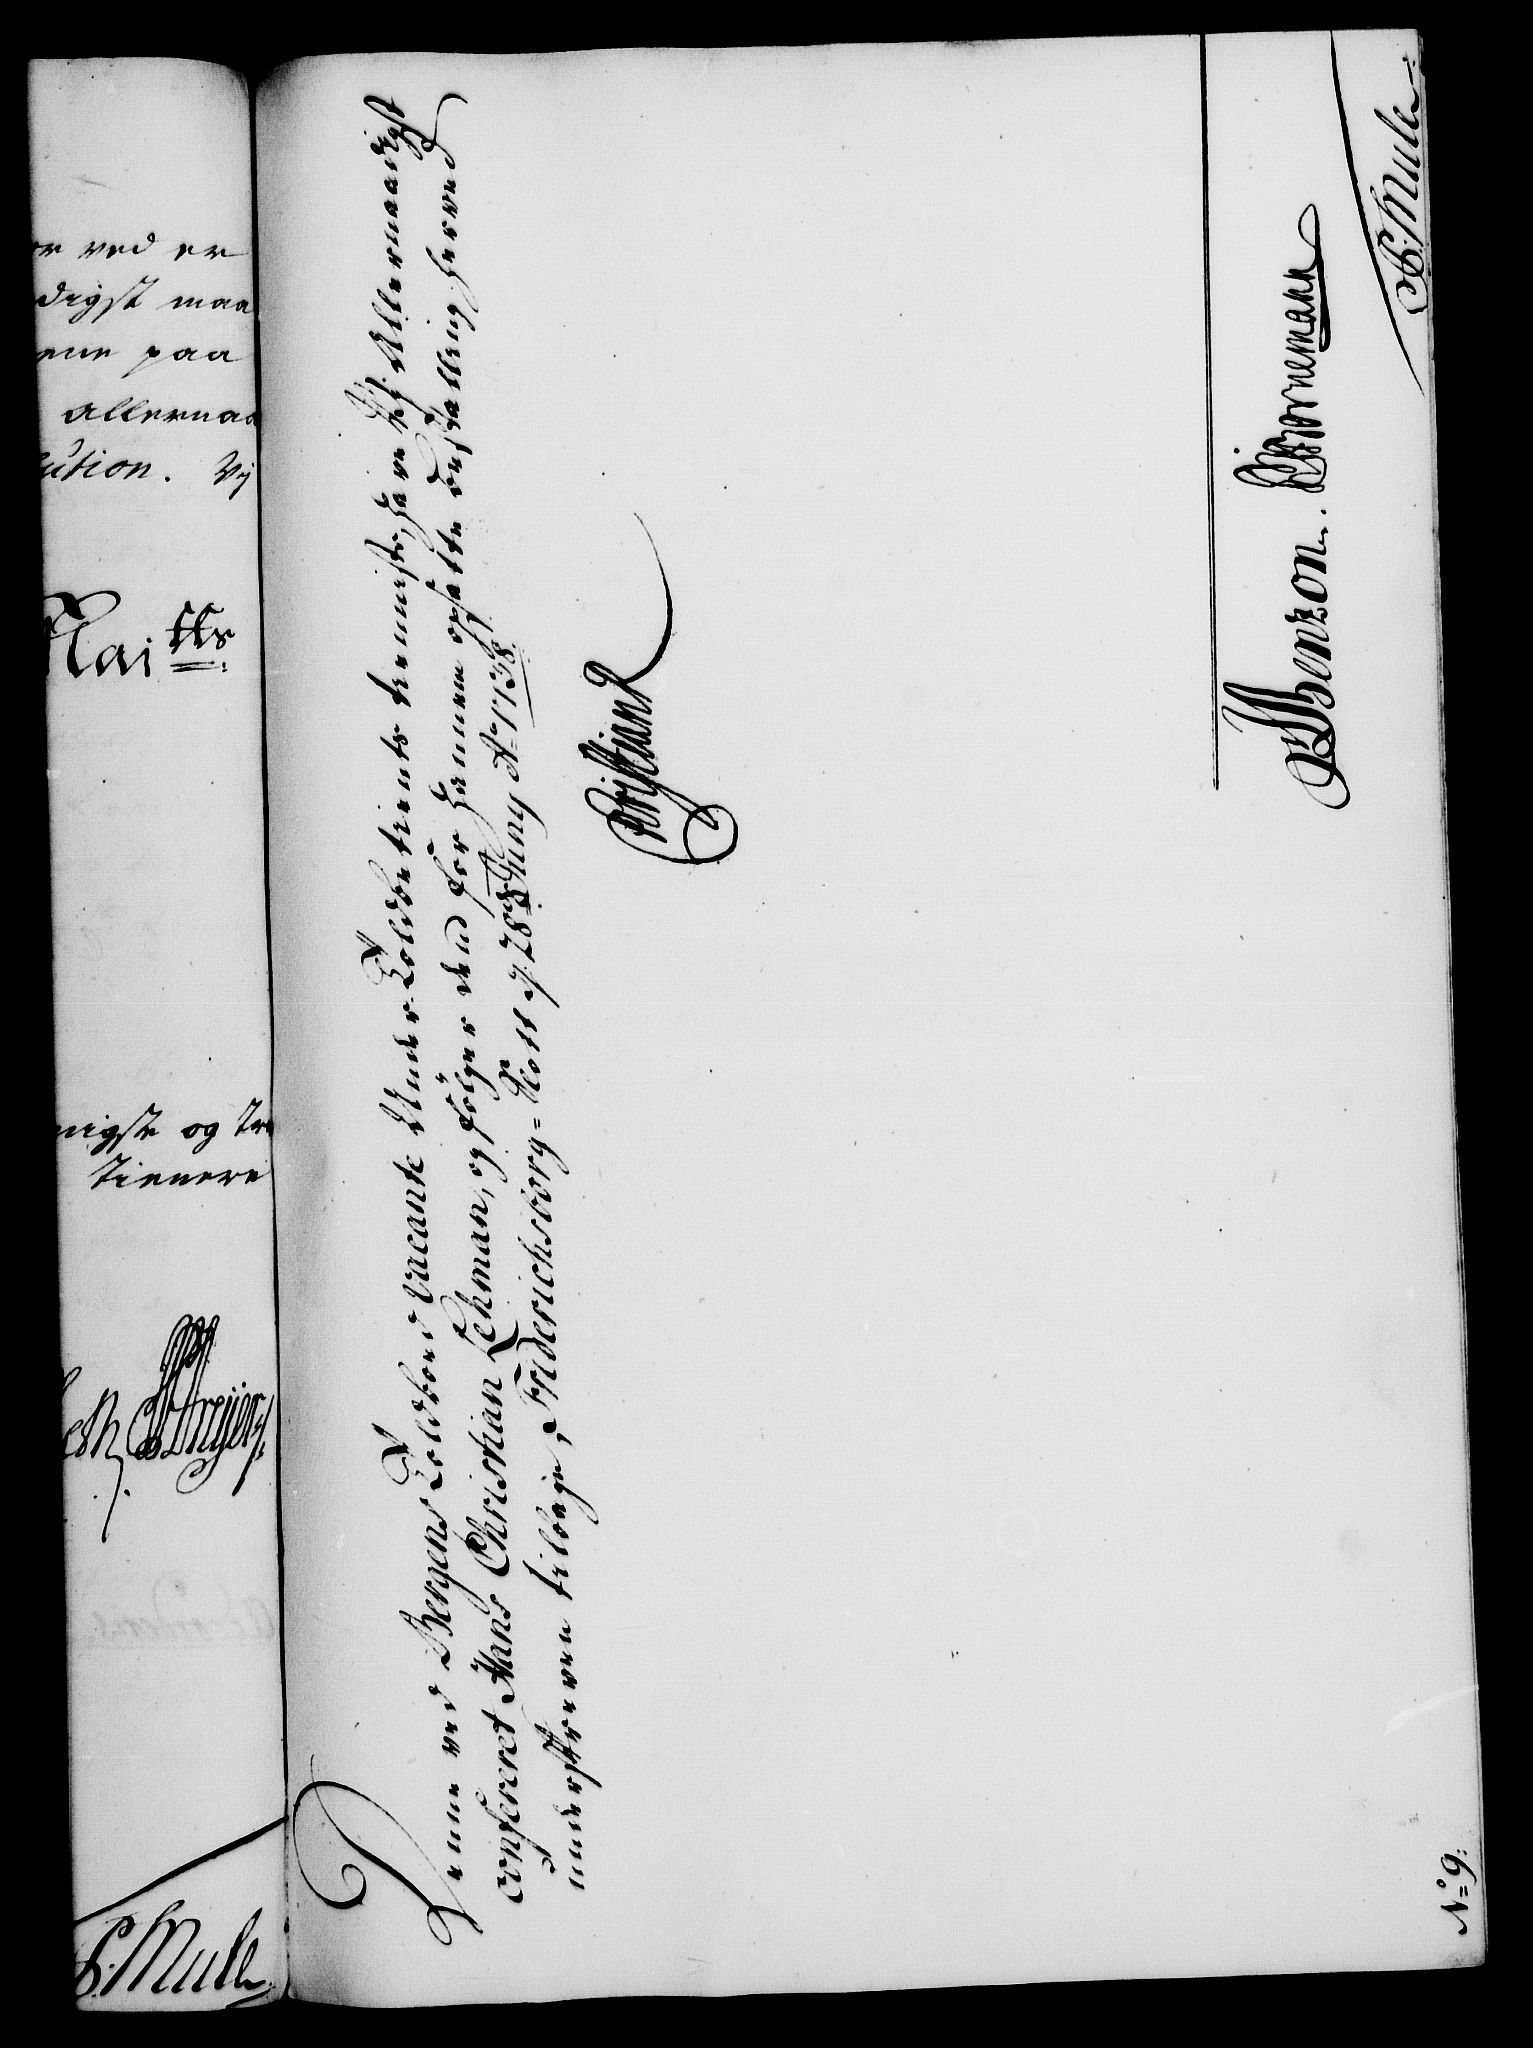 or ved er
digst maa
ene paa
allernaa
ution. Vj
Mai tts
nigste og tro
tienere
Dreyer
S. Mule
Denne ved Bergens Toldboed Vacante Under-Toldbetients tienniste, have Vj Allernaadigst
confereret Hans Christian Lehman, og følger dend for hannem opsatte Bestalling herved
underskreven tilbage, Friderichsborg-Slott d. 28de Juny Ao 1738.
Christian R
Benzon. Bornemann
S. Mule
No 9.